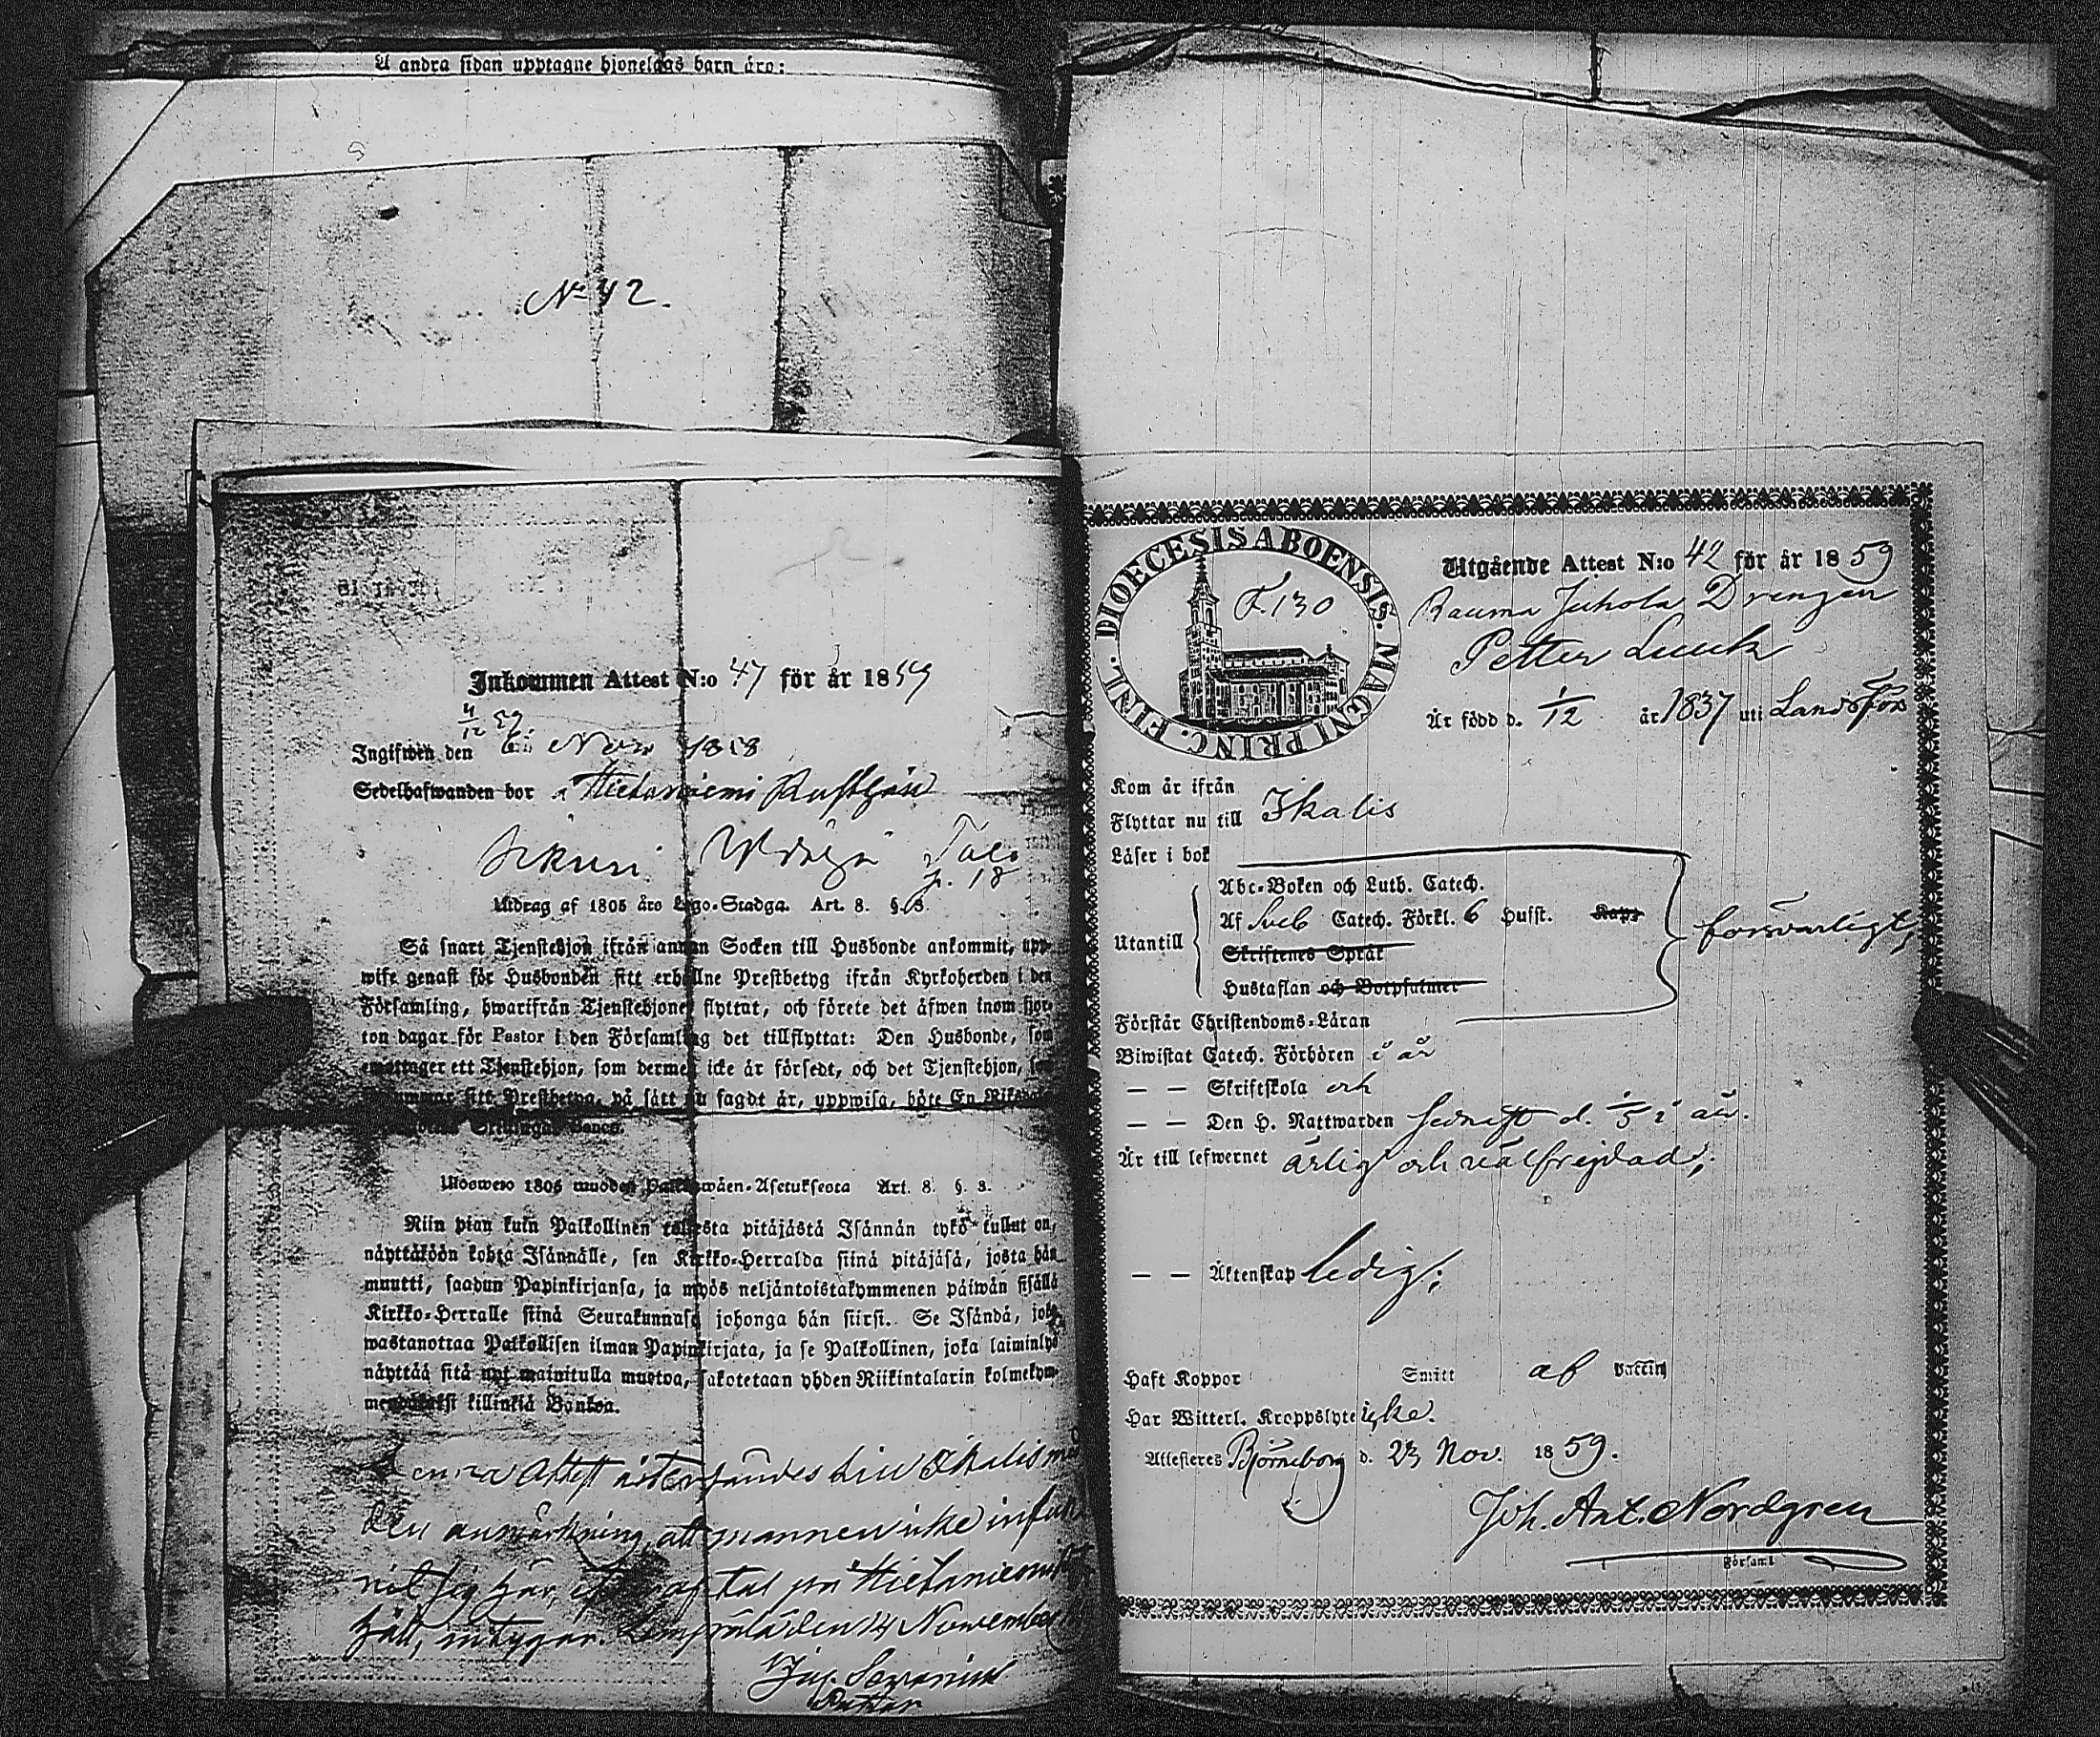 A andra sidan upptagne hjonelags barn äro:
No 42.
Inkommen Attest N:o 47 för år 1859
4/12 59.
Ingifwen den 6 Nov 1858
Sedelhafwanden bor Hietaniemi Rusthåll
p. 18
Utdrag af 1805 års Lego-Stadga. Art. 8. §. 3.
Så snart Tjenstehjon ifrån annan Socken till Husbonde ankommit, upp-
wise genast för Husbonden sitt erhållne Prestbetyg ifrån Kyrkoherden i den
Församling, hwarifrån Tjenstehjonet flyttat, och förete det äfwen inom fjor-
ton dagar för Pastor i den Församling det tillflyttat: Den Husbonde, som
emottager ett Tjenstehjon, som dermed icke är försedt, och det Tjenstehjon, som
försummar sitt Prestbetyg, på sätt nu sagdt är, uppwisa, böte En Riksdaler
Skillingar Banco.
Ulosweto 1805 wuoden Palkkowäen-Asetuksesta Art. 8. §. 3.
Niin pian kuin Palkollinen toisesta pitäjästä Isännän tykö tullut on,
näyttäköön kohta Isännälle, sen Kirkko-Herralda siinä pitäjäsä, josta hän
muutti, saadun Papinkirjansa, ja myös neljäntoistakymmenen päiwän sisällä
Kirkko-Herralle siinä Seurakunnasa johonga hän siirsi. Se Isändä, joka
wastanottaa Palkollisen ilman Papinkirjata, ja se Palkollinen, joka laiminlyö
näyttää sitä nyt mainitulla muotoa, sakotetaan yhden Riikintalarin kolmekym-
mendäkaksi killinkiä Bankoa.
Denna Attest återsändes till Ikalis med
den anmärkning, att mannen icke infun
nit sig här, ej på Hietaniemi
håll, intygar. Lempäälä den 14 November
DIOECESIS ABOENSIS. MAGNI PRINC. FINL.
F. 130
Utgående Attest N:o 42 för år 1859
Rauma Juhola Drengen
Petter Luuk
Är född d. 1/12 år 1837 uti Landsförs
Kom år ifrån
Flyttar nu till Ikalis
Läser i bok
Abc-Boken och Luth. Catech.
Af Sveb Catech. Förkl. 6 Husst. Kap:
Utantill
försvarligt,
Skriftenes Språk
Hustaflan och Botpsalmer
Förstår Christendoms-Läran
Biwistat Catech. Förhören i år
— — Skriftskola och
— — Den H. Nattwarden sednast d. 1/5 i år.
Är till lefwernet ärlig och välfrejdad;
— — Äktenskap ledig;
Haft Koppor Smitt af Vaccin
Har Witterl. Kroppslyte icke.
Attesteres Björneborg d. 23 Nov. 1859.
Joh. Ant. Nordgren
Församl